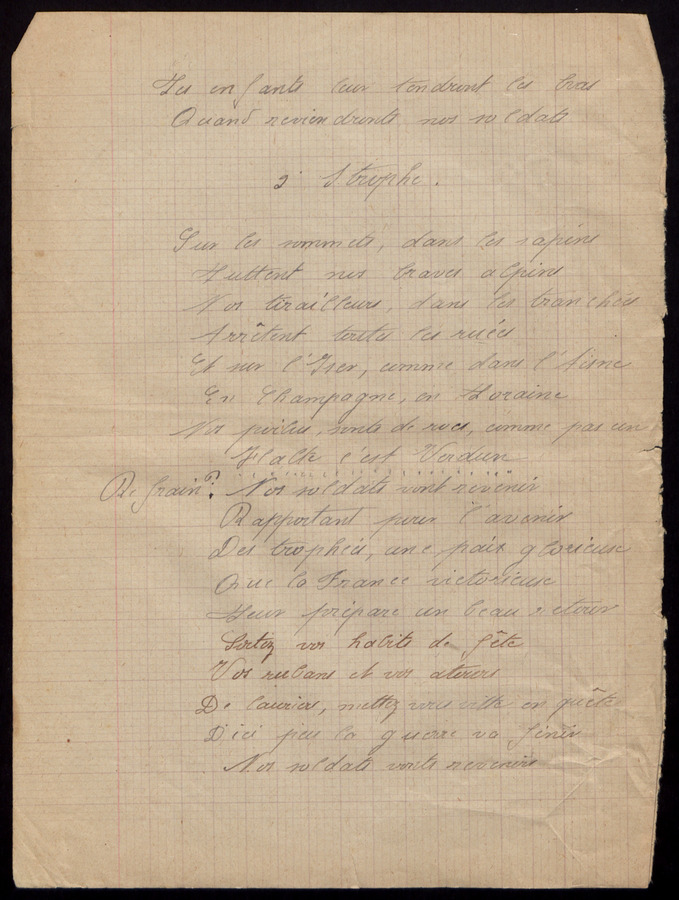 Les enfants leur tendront les bras
Quand reviendronts nos soldats
2e Strophe.
Sur les sommets, dans les sapins
Luttent nos braves alpins
Nos tirailleurs, dans les tranchées
Arrêtent toutes les ruées
Et sur l'Iser, comme dans l'Aisne
En Champagne, en Loraine
Nos poilus, sonts de rocs, comme pas un
Halte c'est Verdun
Refrain: Nos soldats vont revenir
Rapportant pour l'avenir
Des trophées, une paix glorieuse
Que la France victorieuse
Leur prépare un beau retour
Sortez vos habits de fête
Vos rubans et vos atours
De lauriers, mettez vous vite en quête
D'ici peu la guerre va finir
Nos soldats vonts revenir